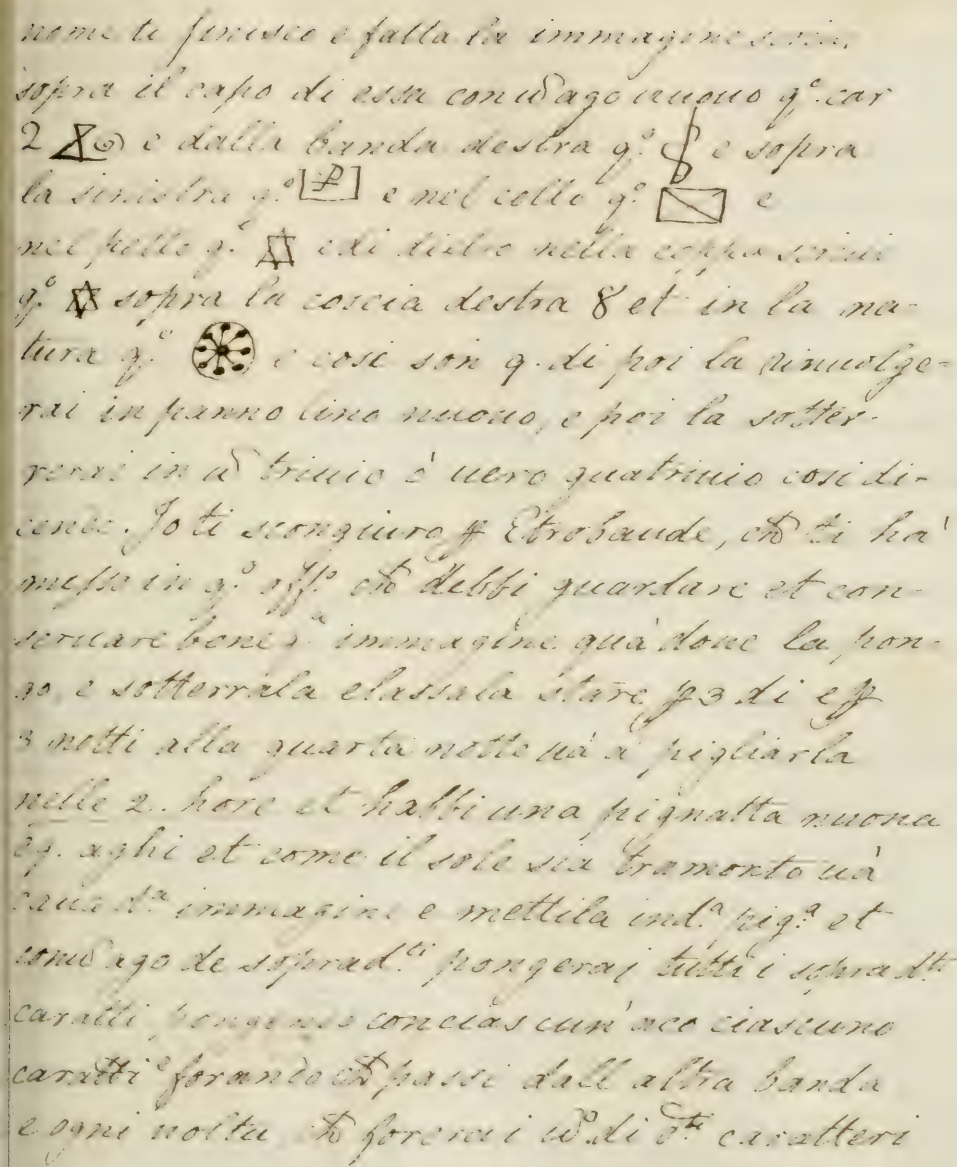 nome ti finisco e fatta la immagine scriui
sopra il capo di essa con ũ ago nuouo q.º car
2 e dalla banda destra q.º e sopra
la sinistra q.º e nel collo q.º e
nel petto q.º e di dietro nella coppa scriui
q.º sopra la coscia destra 8 et in la na-
tura q.º e cosi son 9. di poi la rinuolge-
rai in panno lino nuouo, e poi la sotter-
rerai in ũ triuio ò uero quatriuio cosi di-
cendo. Jo ti scongiuro ꝑ Etrobaude, ch̃ ti hà
messo in q.º off.º ch̃ debbi guardare et con-
seruare bene q.ª immagine quà doue la pon-
go, e sotterrala e lassala stare ꝑ 3 di e ꝑ
3 notti alla quarta notte uà a pigliarla
nelle 2. hore et habbi una pignatta nuoua
e 9. aghi et come il sole sia tramonto uà
caua d.ª immagine e mettila in d.ª pig.ª et
con ũ ago de soprad.ti pongerai tutti i soprad.ti
caratti pongendo con ciascun' aco ciascuno
caratti e forando ch̃ passi dall altra banda
e ogni uolta ch̃ forerai ũ di d.ti caratteri